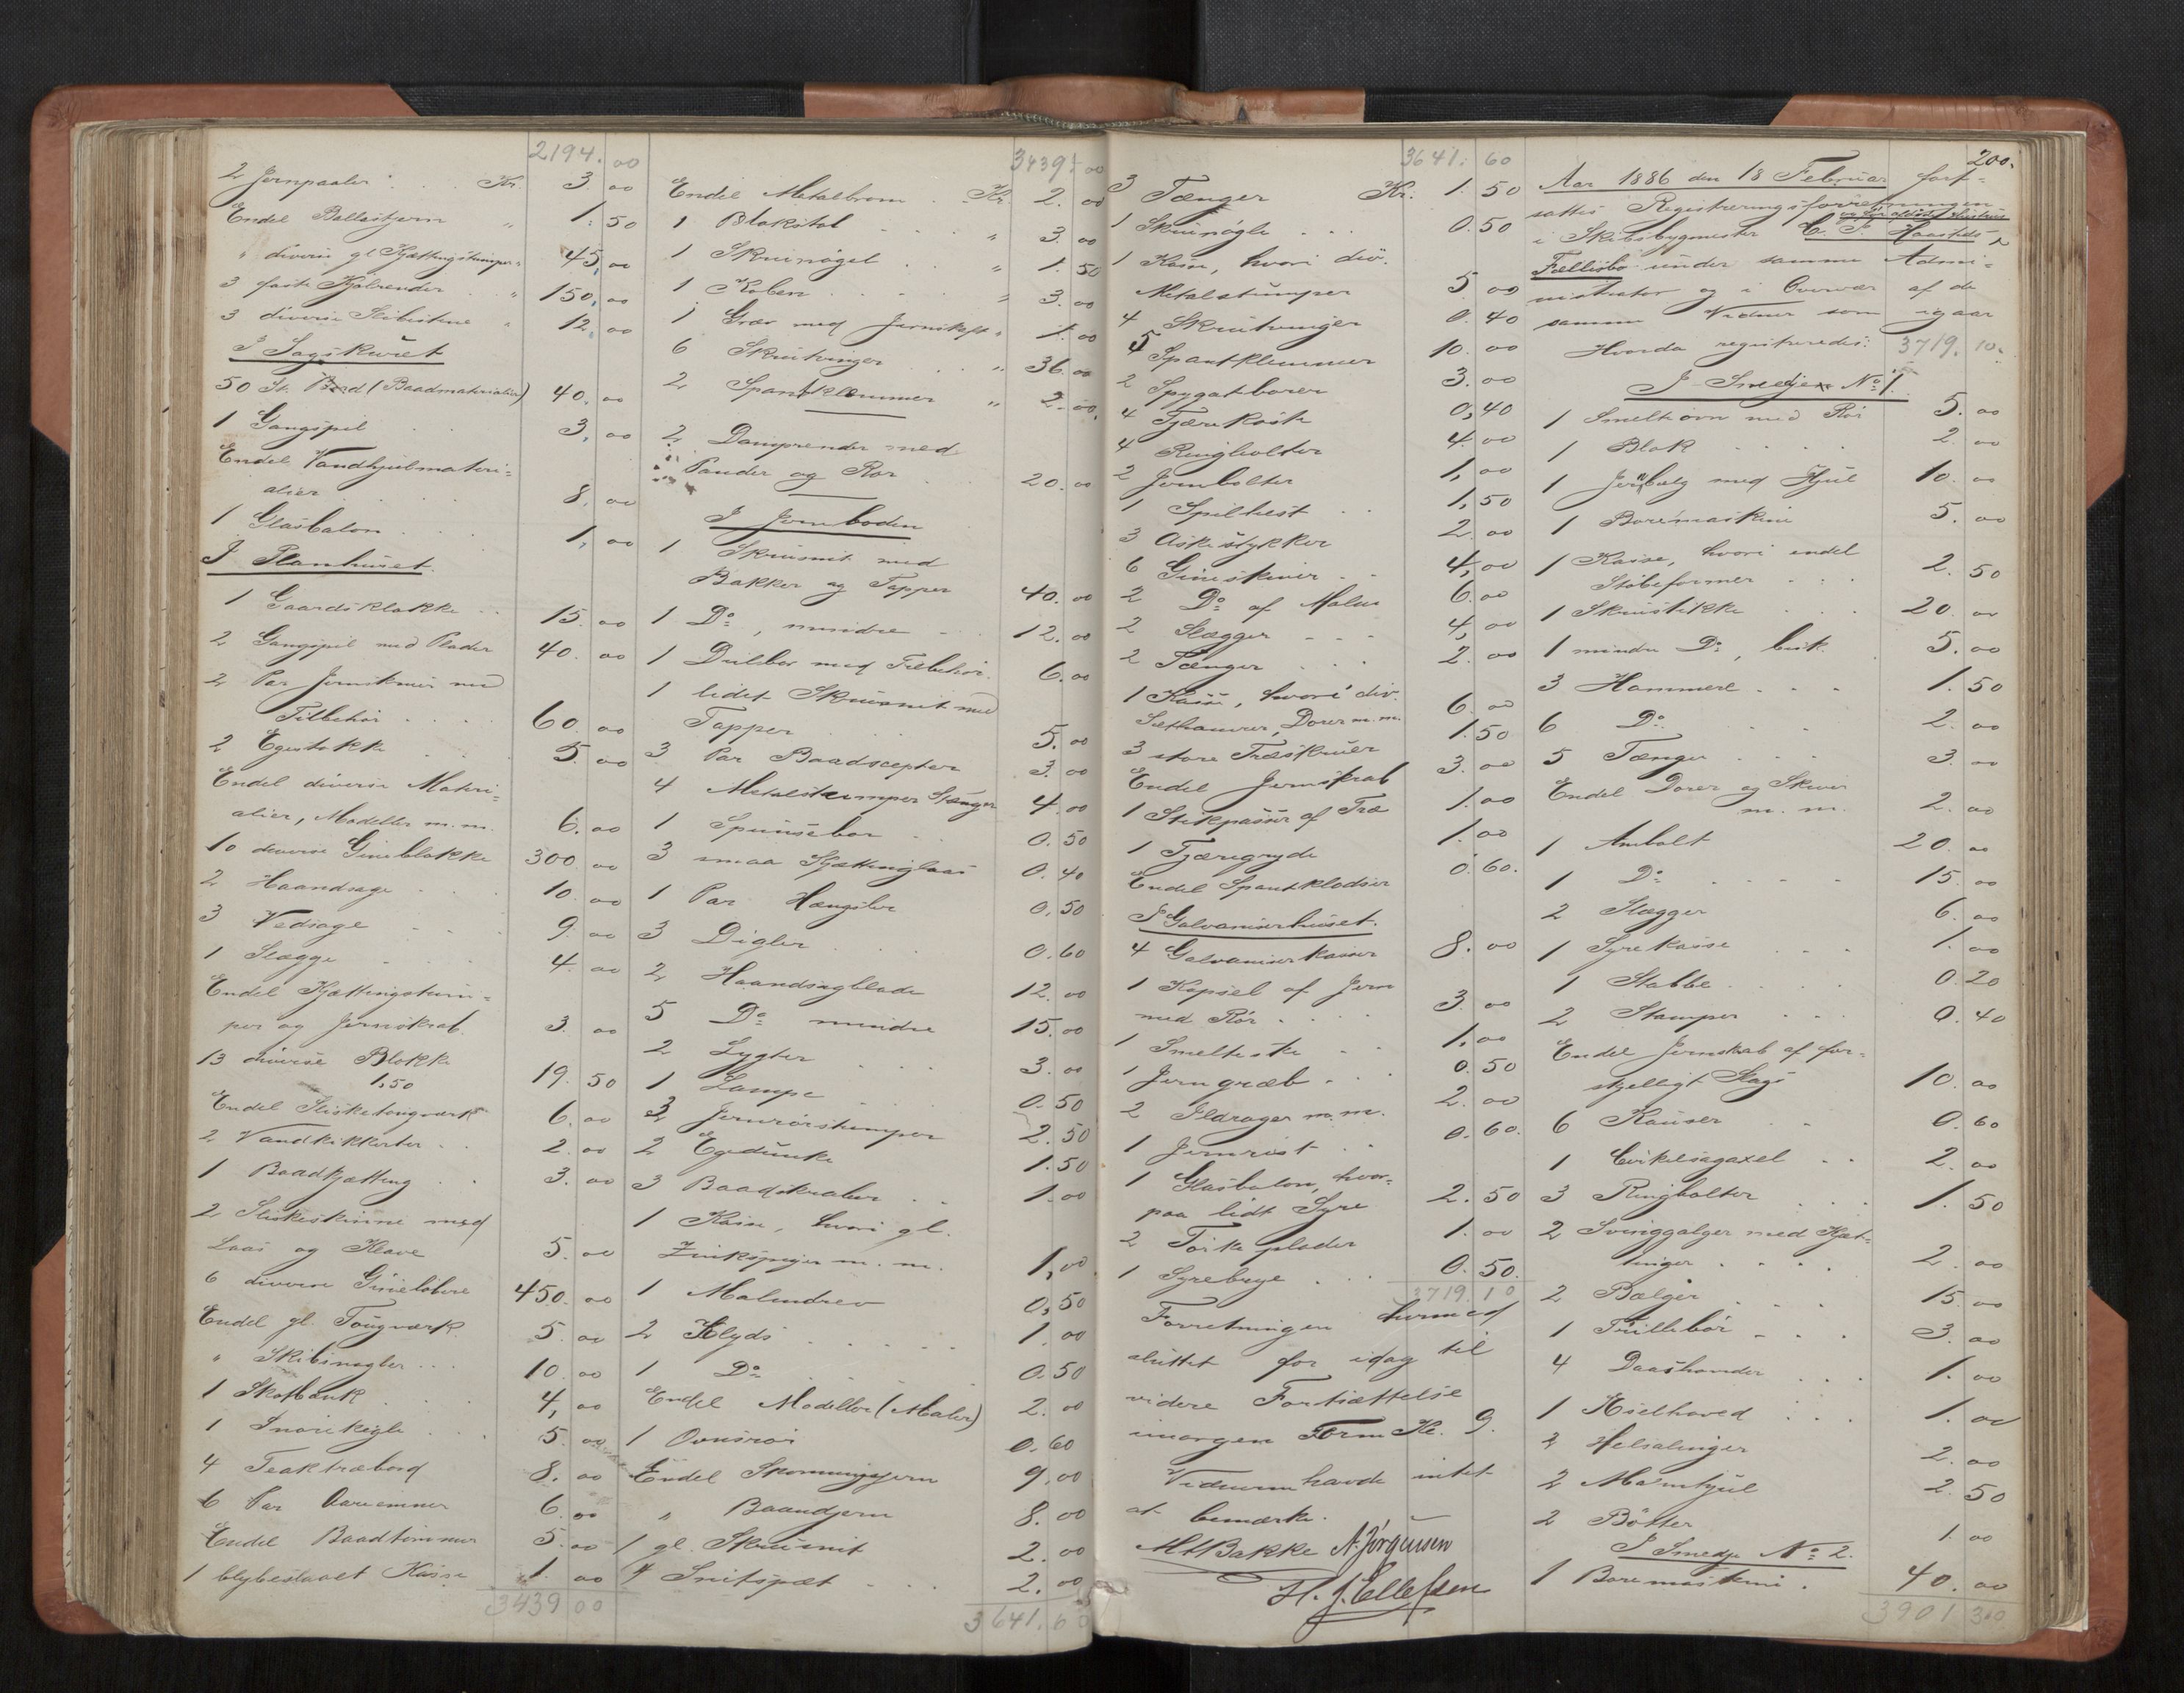 2194. 00
2 Jernpaaler . . . Kr. 3. 00
Endel Ballastjern " 1. 50
" diverse gl Kjættingstumper " 45, 00
3 faste Kjølrender . " 150, 00
3 diverse Slibestene " 12. 00
I Sagskuret
50 St. Bord (Baadmaterialier) 40. 00
1 Gangspil . . 3, 00
Endel Vandhjulmateri-
alier . . . . 8. 00
1 Glasbalon . . . 1, 00
I Planhuset.
1 Gaardsklokke . . 15. 00
2 Gangspil med Plader 40. 00
2 Par Jernskruer med
Tilbehør . . . . 60. 00
2 Egestokke . . 5. 00
Endel diverse Materi-
alier, Modeller m. m. 6. 00
10 diverse Gineblokke 300. 00
2 Haandsage . . . 10. 00
3 Vedsage . . . 9. 00
1 Slægge . . . 4. 00
Endel Kjættingstum-
per og Jernskrab. 3. 00
13 diverse Blokke
1,50 19. 50
Endel Slisketougværk 6. 00
2 Vandkikkerter . . 2. 00
1 Baadkjætting . . 3. 00
2 Sliskeskinne med
Laas og Klave 5. 00
6 diverse Gineløbere 450. 00
Endel gl. Tougværk 5. 00
" Skibsnagler . . . 10. 00
1 Skotbænk . . . 4, 00
1 Snorekegle . . . 5. 00
4 Teaktræbord 8. 00
6 Par Aareemner 6. 00
Endel Baadtømmer 5. 00
1 blybeslaaet Kasse 1. 00
3439 00
3439. 00
Endel Metalbrom . Kr. 2. 00
1 Blokstol . . . " 3. 00
1 Skruenøgel . . " 1. 50
1 Koben . . . " 3. 00
1 Grav med Jernskaft " 1. 00
6 Skrutvinger . . " 36. 00
2 Spantklemmer " 2. 00,
2 Damprender med
Pander og Rør . 20. 00
I Jernboden
1 Skruesnit med
Bakker og Tapper 40. 00
1 Do, mindre . . 12. 00
1 Drilbor med Tilbehør. 6. 00
1 lidet Skruesnit med
Tapper . . . 5. 00
3 Par Baadscepter 3. 00
4 Metalstumper Stænger 4. 00
1 Spunsebor . 0. 50
3 smaa Kjættinglaas 0. 40
1 Par Hængsler 0, 50
3 Digler . . 0. 60
2 Haandsagblade 12. 00
5 Do mindre 15. 00
2 Lygter . . . 3. 00
1 Lampe . . . 0. 50
3 Jernrørstumper 2. 50
2 Egedunke 1. 50
3 Baadskraber . . 1. 00
1 Kasse, hvori gl.
Zinkspiger m. m. 1, 00
1 Malmdrev 0, 50
2 Klyds . . . . . 1. 00
1 Do . . . . 0. 50
Endel Modeller (Maler) 2. 00
1 Ovnsrør 0. 60
Endel Skoningsjern 9, 00
" Baandjern 8. 00
1 gl. Skruesnit 2. 00
4 Snitspæt . . . 2. 00
3641. 60
3641. 60
3 Tænger Kr. 1. 50
1 Skruenøgle . . . 0. 50
1 Kasse, hvori div.
Metalstumper 5. 00
4 Skrutvinger 0. 40
5 Spantklemmer 10. 00
2 Spygatborer 3. 00
4 Tjærekoste 0, 40
4 Ringbolter 4. 00
2 Jernbolter 1, 00
1 Spilhest . . 1, 50
3 Askestykker 2. 00
6 Gineskiver . . 4, 00
2 Do af Malm 6. 00
2 Slægger . . . 4, 00
2 Tænger . . . 2. 00
1 Kasse, hvori div.
Sæthamrer, Dorer m. m. 6. 00
3 store Træskruer 1. 50
Endel Jernskrab 3. 00
1 Stikpasser af Træ 1. 00
1 Tjæregryde 1. 00
Endel Spantklodser 0. 60.
I Galvaniserhuset.
4 Galvaniserkasser 8. 00
1 Kapsel af Jern
med Rør . . . . 3. 00
1 Smelteske . . 1. 00
1 Jerngræb . . . 0. 50
2 Ildrager m. m. 2. 00
1 Jernrist . . 0. 60.
1 Glasbalon, hvor-
paa lidt Syre 2. 50
2 Tørkeplader 1. 00
1 Syrebrye . . . 0. 50.
3719. 10
Forretningen hermed
sluttet for idag til
videre Fortsættelse
imorgen Form Kl. 9.
Vidnerne havde intet
at bemærke.
MABakke N. Jørgensen
H. J. Ellefsen
200.
Aar 1886 den 18 Februar fort-
sattes Registreringsforretningen
og før afdøde Hustrus
i Skibsbygmester C. T. Haasteds
Fællesbo under samme Admi-
nistrator og i Overvær af de
samme Vidner som igaar
Hvorda registreredes: 3719. 10.
I Smedjen No 1.
1 Smelteovn med Rør 5. 00
1 Blok . . . . 2. 00
1 Jernbælg med Hjul 10. 00
1 Boremaskine 5. 00
1 Kasse, hvori endel
Støbeformer . . . 2. 50
1 Skruestikke . . . 20. 00
1 mindre Do, brik. . 5. 00
3 Hammere . . . 1. 50
6 Do . . 2. 00
5 Tænger . . . 3. 00
Endel Dorer og Skiver
m. m. 2. 00
1 Ambolt 20. 00
1 Do . . . . 15. 00
2 Slægger 6. 00
1 Syrekasse . . . 1. 00
1 Stabbe . . . . 0. 20
2 Stamper . . . 0. 40
Endel Jernskrab af for-
skjelligt Slags 10. 00
6 Kauser . . 0. 60
1 Cirkelsagaxel . . 2. 00
3 Ringbolter . . . 1. 50
2 Svinggalger med Kjæt-
tinger . . . . 2. 00
2 Bælger . . . 15. 00
1 Trillebør . . . 3. 00
4 Daashander . . . 1. 00
1 Kjelhoved . . . 1. 00
2 Helsalinger 2. 00
2 Malmhjul 2. 50
2 Bøtter 1. 00
I Smedje No 2.
1 Boremaskine . 40. 00
3901 30